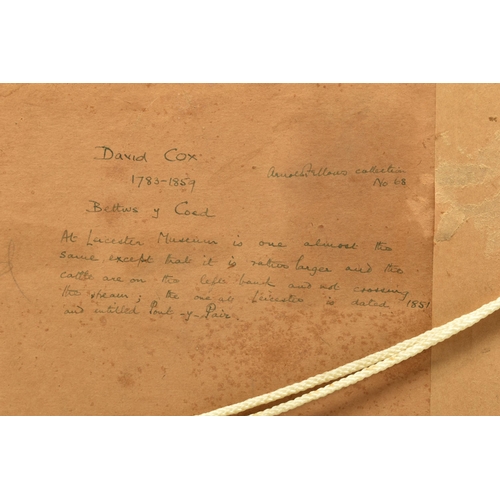 David Cox.
1783-1859
Arnold Fellows collection
No 68
Bettws y Coed
At Leicester Museum is one almost the
same except that it is rather larger and the
cattle are on the left bank and not crossing
the stream; the one at Leicester is dated 1851
and intitled Pont-y-Pair.